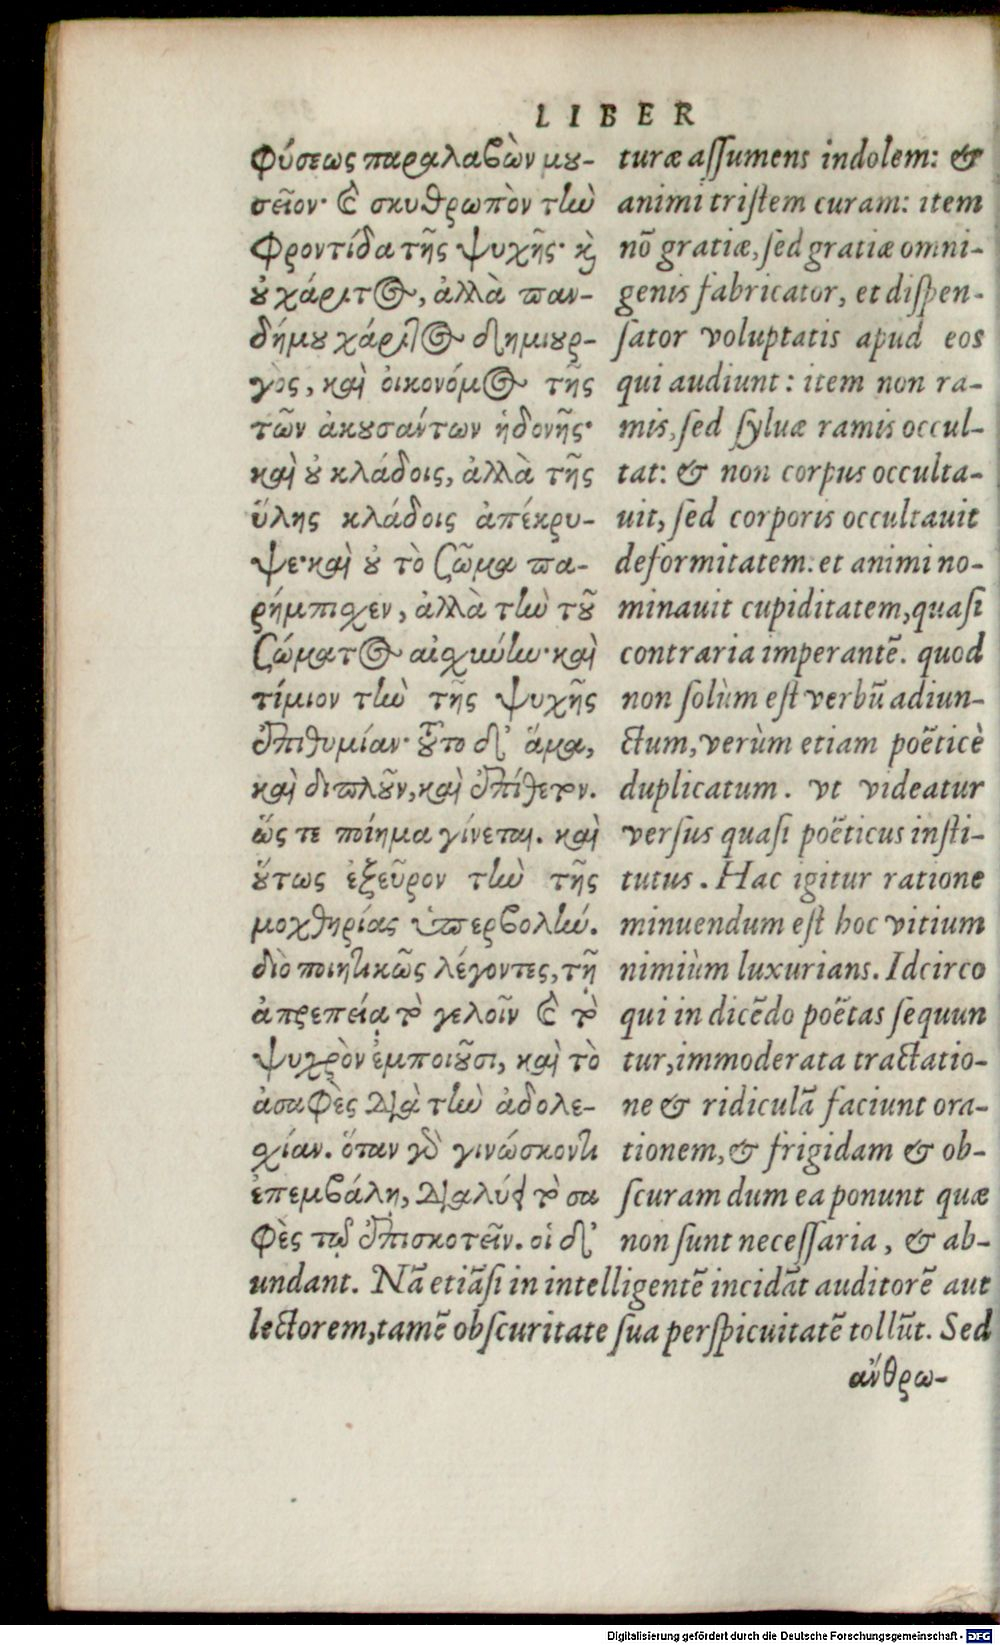 LIBER
φύσεως παραλαβὼν μου-
σεῖον· καὶ σκυθρωπὸν τὴν
φροντίδα τῆς ψυχῆς· καὶ
οὐ χάριτος, ἀλλὰ παν-
δήμου χάριτος δημιουρ-
γὸς, καὶ οἰκονόμος τῆς
τῶν ἀκουσάντων ἡδονῆς·
καὶ οὐ κλάδοις, ἀλλὰ τῆς
ὕλης κλάδοις ἀπέκρυ-
ψε· καὶ οὐ τὸ σῶμα πα-
ρήμπιχεν, ἀλλὰ τὴν τοῦ
σώματος αἰσχύνην· καὶ
τίμιον τὴν τῆς ψυχῆς
ἐπιθυμίαν· οὗτο δ' ἅμα,
καὶ διπλοῦν, καὶ ἐπίθετον.
ὥς τε ποίημα γίνεται. καὶ
οὕτως ἐξεῦρον τὴν τῆς
μοχθηρίας ὑπερβολήν.
διὸ ποιητικῶς λέγοντες, τῇ
ἀπρεπείᾳ τὸ γελοῖον καὶ τὸ
ψυχρὸν ἐμποιοῦσι, καὶ τὸ
ἀσαφὲς διὰ τὴν ἀδολε-
σχίαν. ὅταν γὰρ γινώσκοντι
ἐπεμβάλῃ, διαλύει τὸ σα
φὲς τῷ ἐπισκοτεῖν. οἱ δ'
turæ assumens indolem: &
animi tristem curam: item
nō gratiæ, sed gratiæ omni-
genis fabricator, et dispen-
sator voluptatis apud eos
qui audiunt: item non ra-
mis, sed syluæ ramis occul-
tat: & non corpus occulta-
uit, sed corporis occultauit
deformitatem: et animi no-
minauit cupiditatem, quasi
contraria imperantē. quod
non solùm est verbū adiun-
ctum, verùm etiam poëticè
duplicatum. vt videatur
versus quasi poëticus insti-
tutus. Hac igitur ratione
minuendum est hoc vitium
nimiùm luxurians. Idcirco
qui in dicēdo poëtas sequun
tur, immoderata tractatio-
ne & ridiculā faciunt ora-
tionem, & frigidam & ob-
scuram dum ea ponunt quæ
non sunt necessaria, & ab-
undant. Nā etiāsi in intelligentē incidāt auditorē aut
lectorem, tamē obscuritate sua perspicuitatē tollūt. Sed
ἄνθρω-
Digitalisierung gefördert durch die Deutsche Forschungsgemeinschaft - DFG